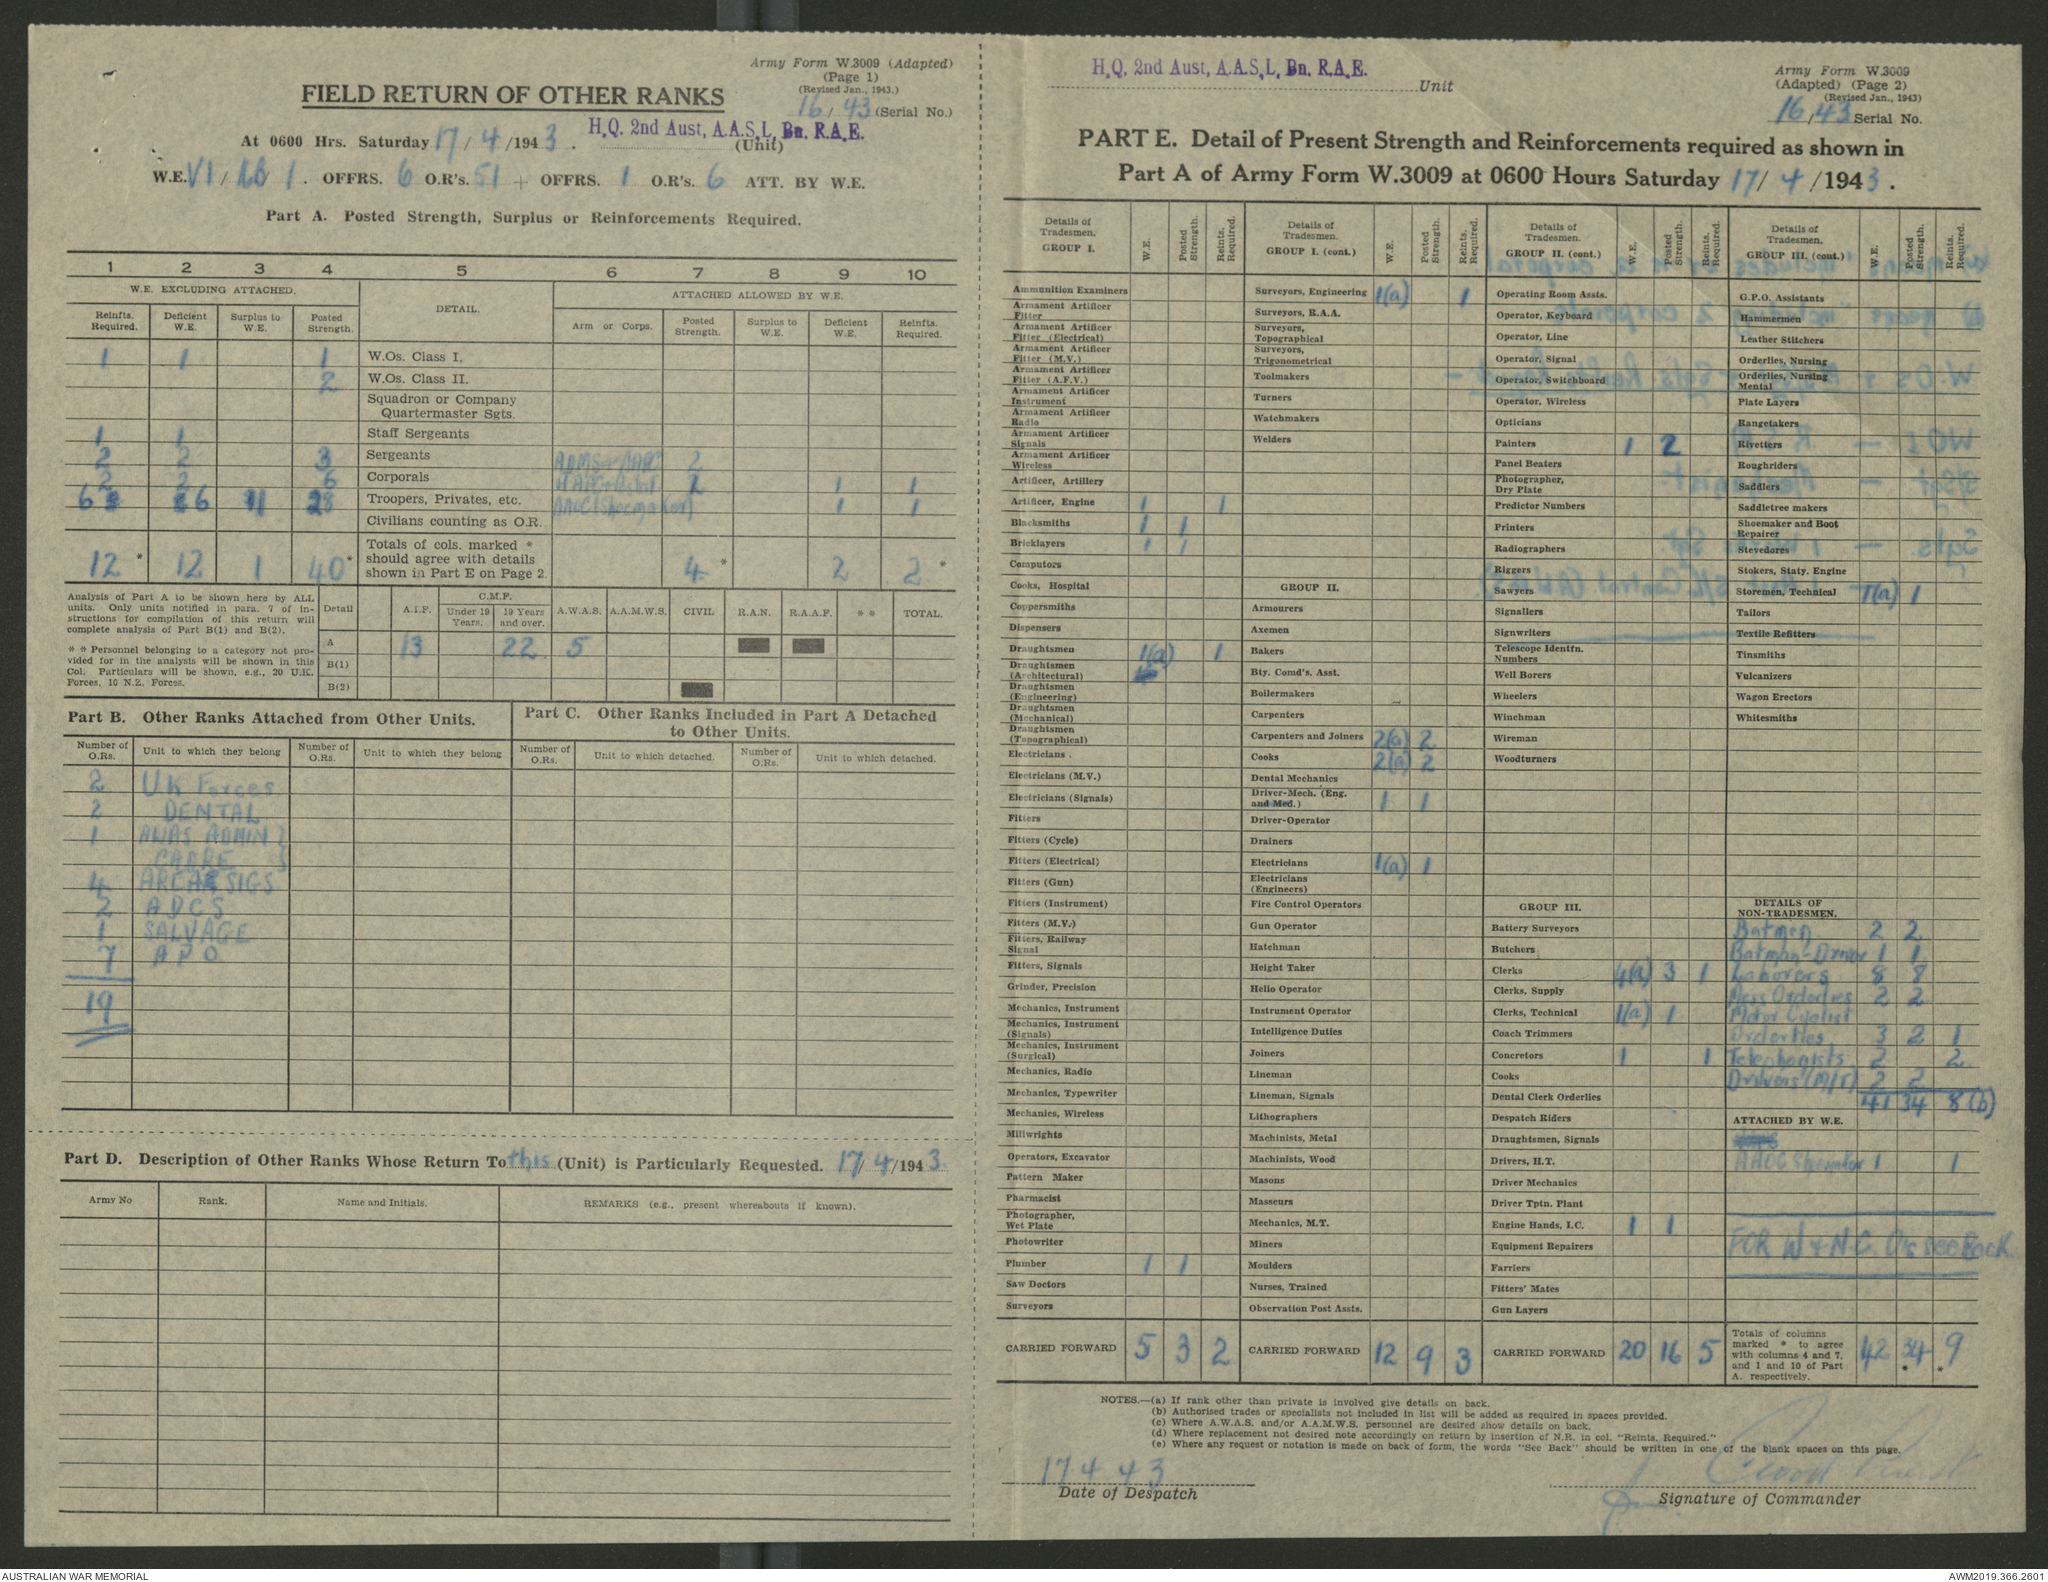 Army Form W.3009 (Adapted)
(Page 1)
(Revised Jan., 1943.)
FIELD RETURN OF OTHER RANKS
16/43 (Serial No.)
At 0600 Hrs. Saturday 17/4/1943.
H.Q. 2nd Aust, A.A.S.L. Bn. R.A.E.
(Unit)
W.E. VI / / 1. OFFRS. 6 O.R's. 51 + OFFRS. 1 O.R's. 6 ATT. BY W.E.
Part A. Posted Strength, Surplus or Reinforcements Required.
1 2 3 4 5 6 7 8 9 10
W.E. EXCLUDING ATTACHED. DETAIL. ATTACHED ALLOWED BY W.E.
Reinfts. Required. Deficient W.E. Surplus to W.E. Posted Strength. Arm or Corps. Posted Strength. Surplus to W.E. Deficient W.E. Reinfts. Required.
1 1 1 W.Os. Class I.
2 W.Os. Class II.
Squadron or Company
Quartermaster Sgts.
1 1 Staff Sergeants
2 2 3 Sergeants 2
2 2 6 Corporals 2 1 1
6 6 1 28 Troopers, Privates, etc. AAOC (Shoemaker) 1 1
Civilians counting as O.R.
12 * 12 1 40 * Totals of cols. marked * should agree with details shown in Part E on Page 2. 4 * 2 2 *
Analysis of Part A to be shown here by ALL units. Only units notified in para. 7 of instructions for compilation of this return will complete analysis of Part B(1) and B(2).
* * Personnel belonging to a category not provided for in the analysis will be shown in this Col. Particulars will be shown, e.g., 20 U.K. Forces, 10 N.Z. Forces.
Detail A.I.F. C.M.F. Under 19 Years. 19 Years and over. A.W.A.S. A.A.M.W.S. CIVIL R.A.N. R.A.A.F. * * TOTAL.
A 13 22 5
B(1)
B(2)
Part B. Other Ranks Attached from Other Units.
Number of O.Rs. Unit to which they belong Number of O.Rs. Unit to which they belong
2 U.K Forces
2 DENTAL
1 AWAS ADMIN }
CADRE }
4 AREA SIGS
2 ADCS
1 SALVAGE
7 APO
19
Part C. Other Ranks Included in Part A Detached
to Other Units.
Number of O.Rs. Unit to which detached. Number of O.Rs. Unit to which detached.
Part D. Description of Other Ranks Whose Return To this (Unit) is Particularly Requested. 17/4/1943
Army No Rank. Name and Initials. REMARKS (e.g., present whereabouts if known).
H.Q. 2nd Aust, A.A.S.L. Bn. R.A.E.
Unit
Army Form W.3009
(Adapted) (Page 2)
(Revised Jan., 1943)
16/43 Serial No.
PART E. Detail of Present Strength and Reinforcements required as shown in
Part A of Army Form W.3009 at 0600 Hours Saturday 17/4/1943.
Details of Tradesmen. GROUP I. W.E. Posted Strength. Reints. Required.
Ammunition Examiners
Armament Artificer Fitter
Armament Artificer Fitter (Electrical)
Armament Artificer Fitter (M.V.)
Armament Artificer Fitter (A.F.V.)
Armament Artificer Instrument
Armament Artificer Radio
Armament Artificer Signals
Armament Artificer Wireless
Artificer, Artillery
Artificer, Engine 1 1
Blacksmiths 1 1
Bricklayers 1 1
Computors
Cooks, Hospital
Coppersmiths
Dispensers
Draughtsmen 1(a) 1
Draughtsmen (Architectural)
Draughtsmen (Engineering)
Draughtsmen (Mechanical)
Draughtsmen (Topographical)
Electricians .
Electricians (M.V.)
Electricians (Signals)
Fitters
Fitters (Cycle)
Fitters (Electrical)
Fitters (Gun)
Fitters (Instrument)
Fitters (M.V.)
Fitters, Railway Signal
Fitters, Signals
Grinder, Precision
Mechanics, Instrument
Mechanics, Instrument (Signals)
Mechanics, Instrument (Surgical)
Mechanics, Radio
Mechanics, Typewriter
Mechanics, Wireless
Millwrights
Operators, Excavator
Pattern Maker
Pharmacist
Photographer, Wet Plate
Photowriter
Plumber 1 1
Saw Doctors
Surveyors
CARRIED FORWARD 5 3 2
Details of Tradesmen. GROUP I. (cont.) W.E. Posted Strength. Reints. Required.
Surveyors, Engineering 1(a) 1
Surveyors, R.A.A.
Surveyors, Topographical
Surveyors, Trigonometrical
Toolmakers
Turners
Watchmakers
Welders
GROUP II.
Armourers
Axemen
Bakers
Bty. Comd's. Asst.
Boilermakers
Carpenters
Carpenters and Joiners 2(a) 2
Cooks 2(a) 2
Dental Mechanics
Driver-Mech. (Eng. and Med.) 1 1
Driver-Operator
Drainers
Electricians 1(a) 1
Electricians (Engineers)
Fire Control Operators
Gun Operator
Hatchman
Height Taker
Helio Operator
Instrument Operator
Intelligence Duties
Joiners
Lineman
Lineman, Signals
Lithographers
Machinists, Metal
Machinists, Wood
Masons
Masseurs
Mechanics, M.T.
Miners
Moulders
Nurses, Trained
Observation Post Assts.
CARRIED FORWARD 12 9 3
Details of Tradesmen. GROUP II. (cont.) W.E. Posted Strength. Reints. Required.
Operating Room Assts.
Operator, Keyboard
Operator, Line
Operator, Signal
Operator, Switchboard
Operator, Wireless
Opticians
Painters 1 2
Panel Beaters
Photographer, Dry Plate
Predictor Numbers
Printers
Radiographers
Riggers
Sawyers
Signallers
Signwriters
Telescope Identfn. Numbers
Well Borers
Wheelers
Winchman
Wireman
Woodturners
GROUP III.
Battery Surveyors
Butchers
Clerks 4(a) 3 1
Clerks, Supply
Clerks, Technical 1(a) 1
Coach Trimmers
Concretors 1 1
Cooks
Dental Clerk Orderlies
Despatch Riders
Draughtsmen, Signals
Drivers, H.T.
Driver Mechanics
Driver Tptn. Plant
Engine Hands, I.C. 1 1
Equipment Repairers
Farriers
Fitters' Mates
Gun Layers
CARRIED FORWARD 20 16 5
Details of Tradesmen. GROUP III. (cont.) W.E. Posted Strength. Reints. Required.
G.P.O. Assistants
Hammermen
Leather Stitchers
Orderlies, Nursing
Orderlies, Nursing Mental
Plate Layers
Rangetakers
Rivetters
Roughriders
Saddlers
Saddletree makers
Shoemaker and Boot Repairer
Stevedores
Stokers, Staty. Engine
Storemen, Technical 1(a) 1
Tailors
Textile Refitters
Tinsmiths
Vulcanizers
Wagon Erectors
Whitesmiths
DETAILS OF NON-TRADESMEN.
Batmen 2 2
Batman-Driver 1 1
Laborers 8 8
Mess Orderlies 2 2
Motor Cyclist
Orderlies 3 2 1
Telephonists 2 2
Drivers (M/T) 2 2
41 34 8(b)
ATTACHED BY W.E.
AAOC Shoemaker 1 1
FOR W & N.C. O's see Back
Totals of columns marked * to agree with columns 4 and 7, and 1 and 10 of Part A. respectively. 42 34 * 9 *
NOTES.—(a) If rank other than private is involved give details on back.
(b) Authorised trades or specialists not included in list will be added as required in spaces provided.
(c) Where A.W.A.S. and/or A.A.M.W.S. personnel are desired show details on back.
(d) Where replacement not desired note accordingly on return by insertion of N.R. in col. "Reints. Required."
(e) Where any request or notation is made on back of form, the words "See Back" should be written in one of the blank spaces on this page.
17 4 43
Date of Despatch
Signature of Commander
AUSTRALIAN WAR MEMORIAL
AWM2019.366.2601